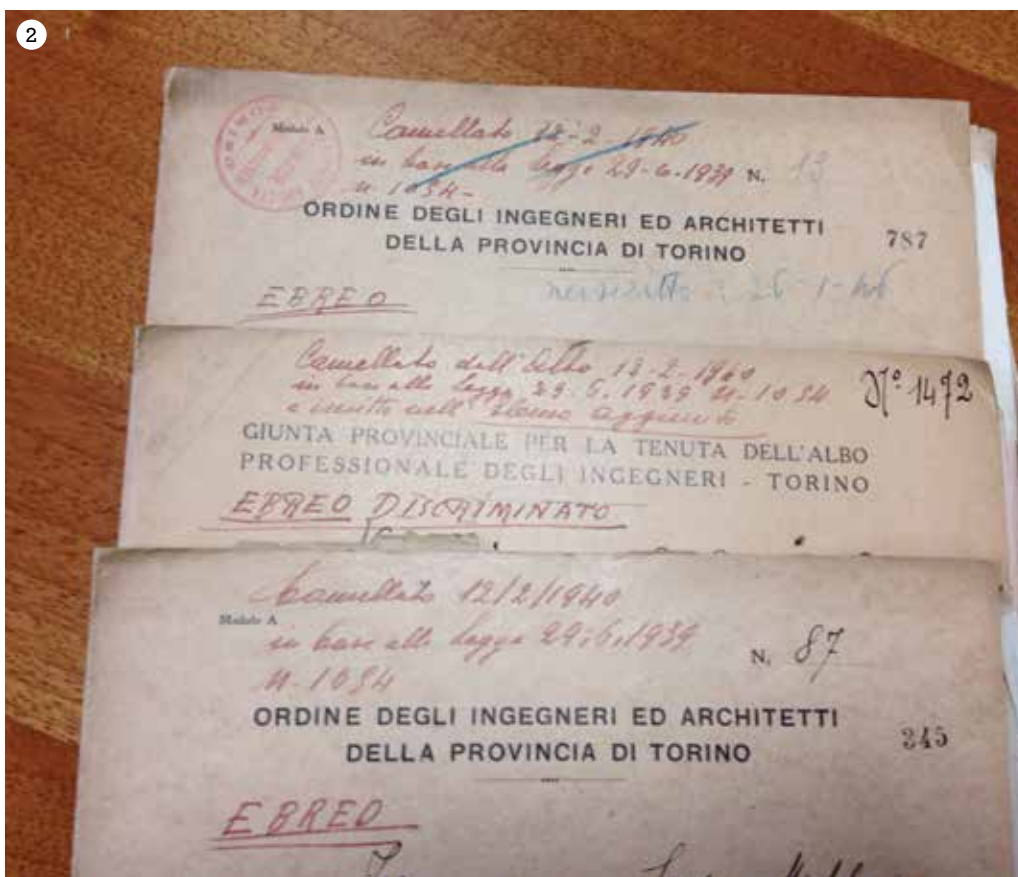 2
Modulo A
Cancellato 12-2-1940
in base alla legge 29-6-1939 N. 13
n. 1054-
ORDINE DEGLI INGEGNERI ED ARCHITETTI
DELLA PROVINCIA DI TORINO
787
EBREO
26-1-46
Cancellato dall'Albo 12-2-1940
in base alla legge 29.6.1939 n. 1054
Nº 1472
GIUNTA PROVINCIALE PER LA TENUTA DELL'ALBO
PROFESSIONALE DEGLI INGEGNERI - TORINO
EBREO DISCRIMINATO
Cancellato 12/2/1940
Modulo A
in base alla legge 29.6.1939
N. 87
n. 1054
ORDINE DEGLI INGEGNERI ED ARCHITETTI
DELLA PROVINCIA DI TORINO
345
EBREO